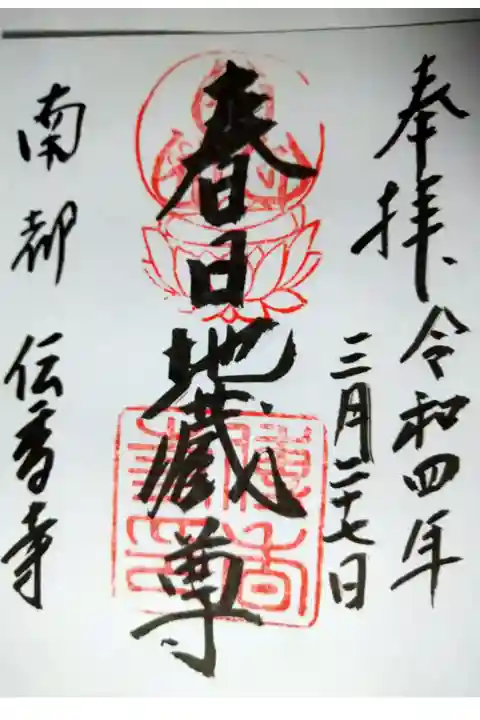 奉拝、令和四年
三月二十七日
春日地蔵尊
南都 伝香寺